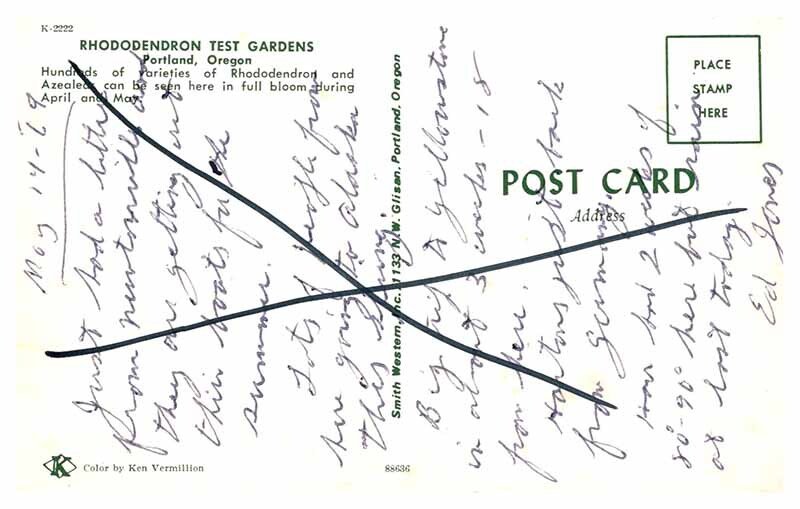 K-2222
RHODODENDRON TEST GARDENS
Portland, Oregon
Hundreds of varieties of Rhododendron and
Azealeas can be seen here in full bloom during
April and May.
PLACE
STAMP
HERE
POST CARD
Address
Smith Western, Inc. 1133 N.W. Glisan, Portland, Oregon
May 14-
Just had a letter
from Newtonville and
they are getting out
this boats for the
summer.
Lots of people from
here going to Alaska
this
Big trip to Yellowstone
in about 3 weeks - 15
from here.
just back
from Germany
have had 2 weeks of
80-90° here but rain
at last today.
Ed Jones
Color by Ken Vermillion
88636